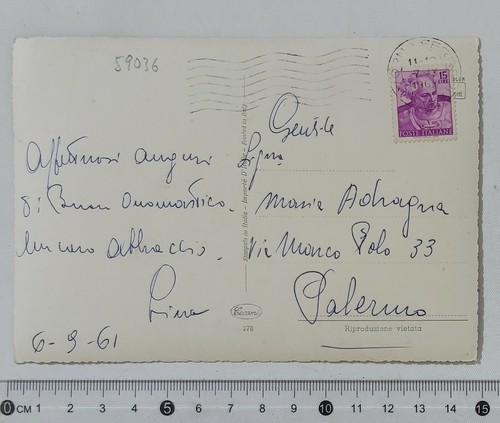 59036
Affettuosi auguri
di Buon Onomastico.
Un caro abbraccio.
Lina
6-9-61
Gentile
Sig.ra
Maria Adragna
Via Marco Polo 33
Palermo
15
POSTE ITALIANE
Stampato in Italia - Importé D'Italie - Printed in Italy
278
Riproduzione vietata
0 CM 1 2 3 4 5 6 7 8 9 10 11 12 13 14 15